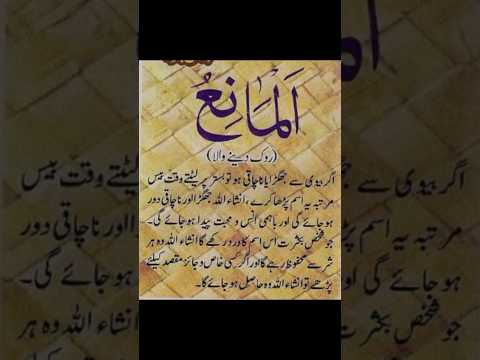 اَلْمَانِعُ
(روک دینے والا)
اگر بیوی سے جھگڑا یا ناچاقی ہو تو بستر پر لیٹتے وقت بیس
مرتبہ یہ اسم پڑھا کرے، انشاء اللہ جھگڑا اور ناچاقی دور
ہو جائے گی اور باہمی انس و محبت پیدا ہو جائے گی۔
جو شخص بکثرت اس اسم کا ورد رکھے گا انشاء اللہ وہ ہر
شر سے محفوظ رہے گا اور اگر کسی خاص و جائز مقصد کیلئے
پڑھے تو انشاء اللہ وہ حاصل ہو جائے گا۔